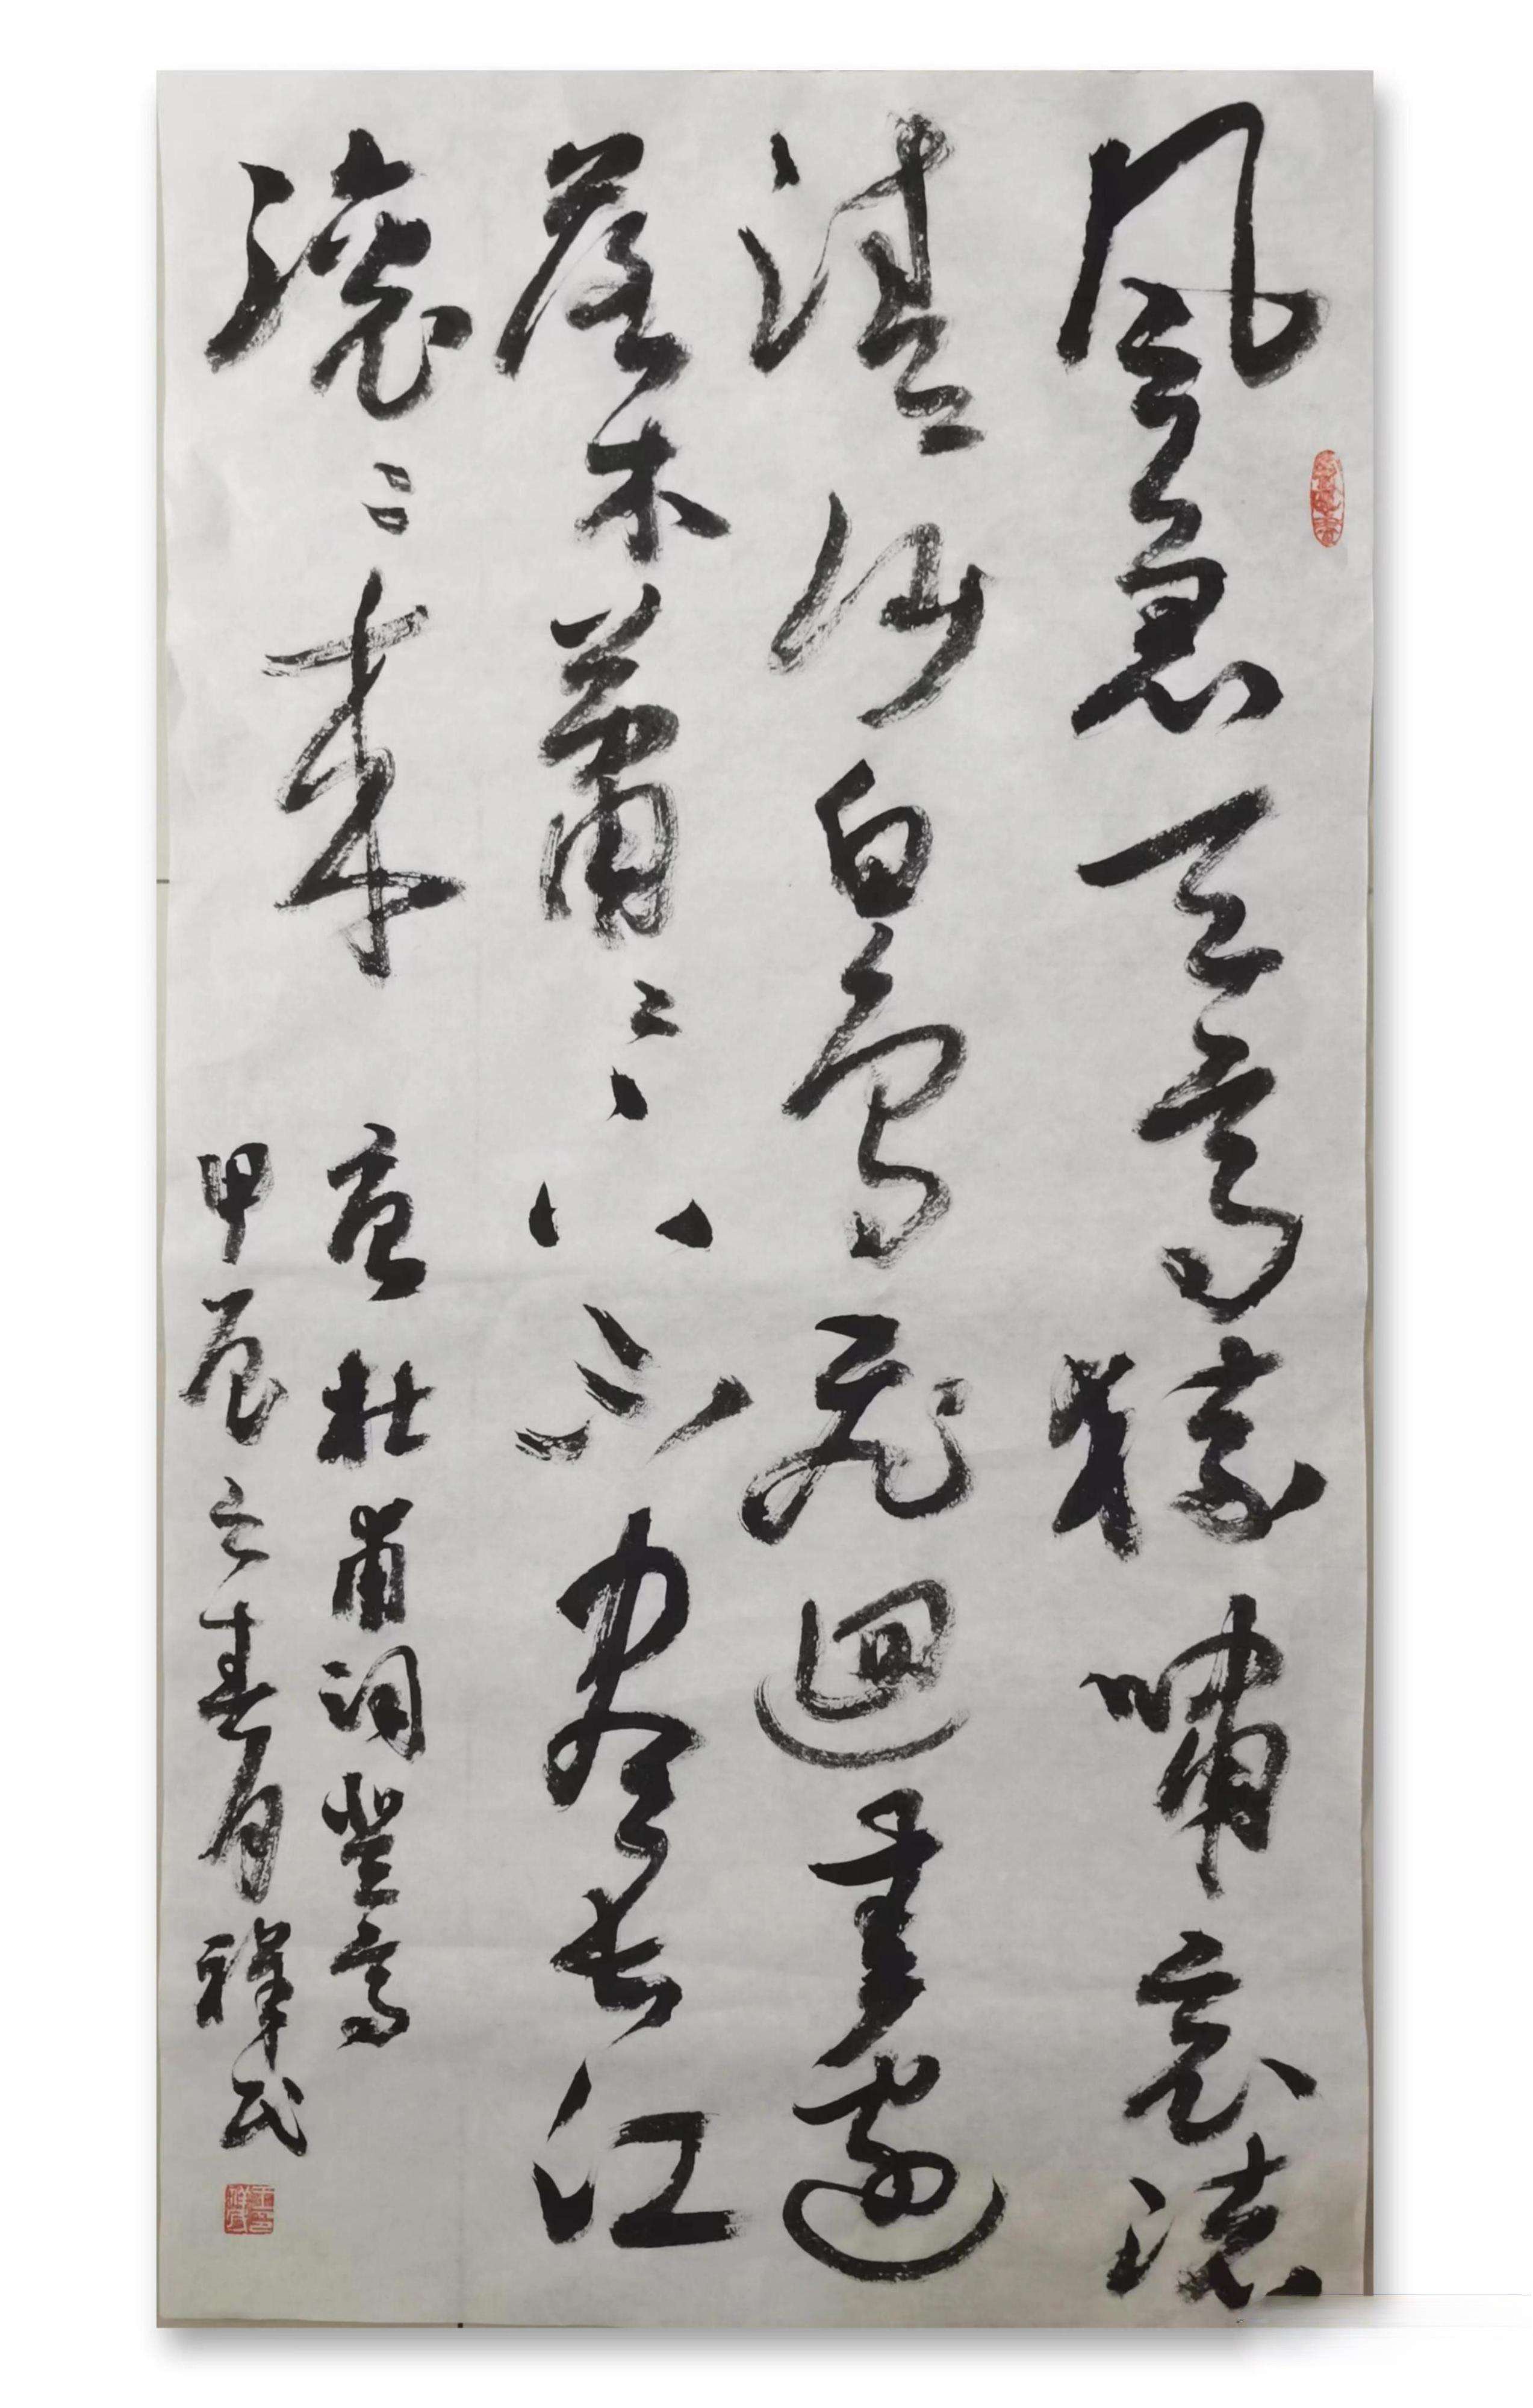 風急天高猿嘯哀渚
清沙白鳥飛迴無邊
落木蕭〻下不盡長江
滚〻来
唐杜甫词登高
甲辰之春月祥民